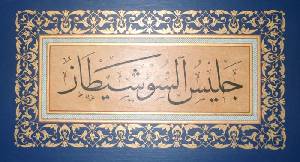 جليس السوشيطاز